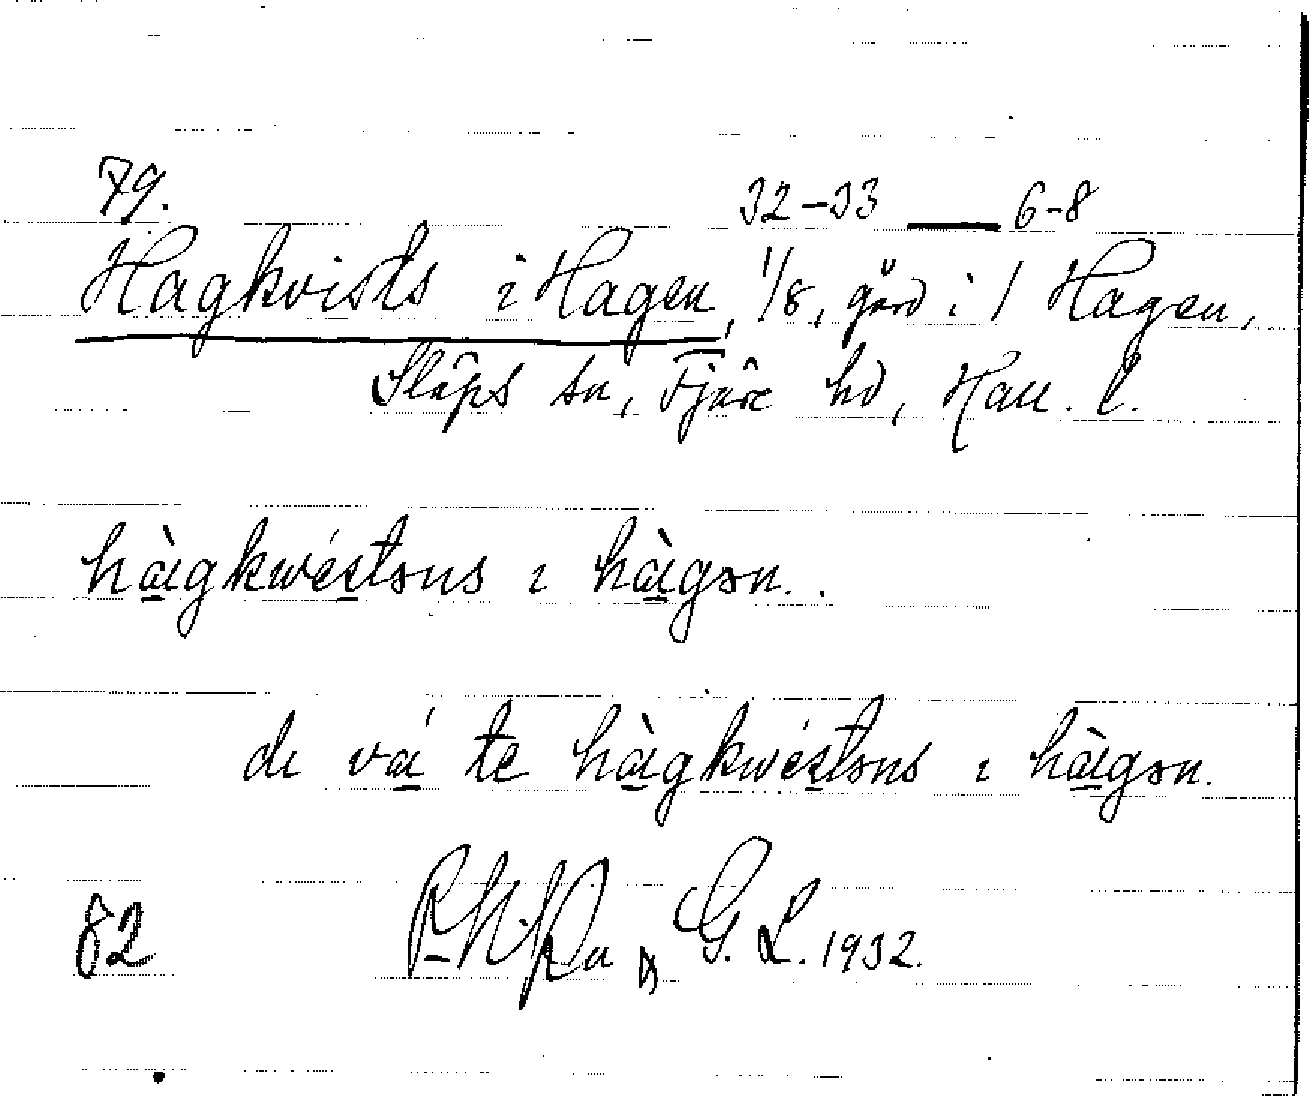 79.
32-33 — 6-8
Hagkvists i Hagen, 1/8, gård i 1 Hagen,
Släps sn, Fjäre hd, Hall. l.
hàgkwéstəns ı hàgən.
de vá te hàgkwéstəns ı hàgən.
82 G. L. 1932.